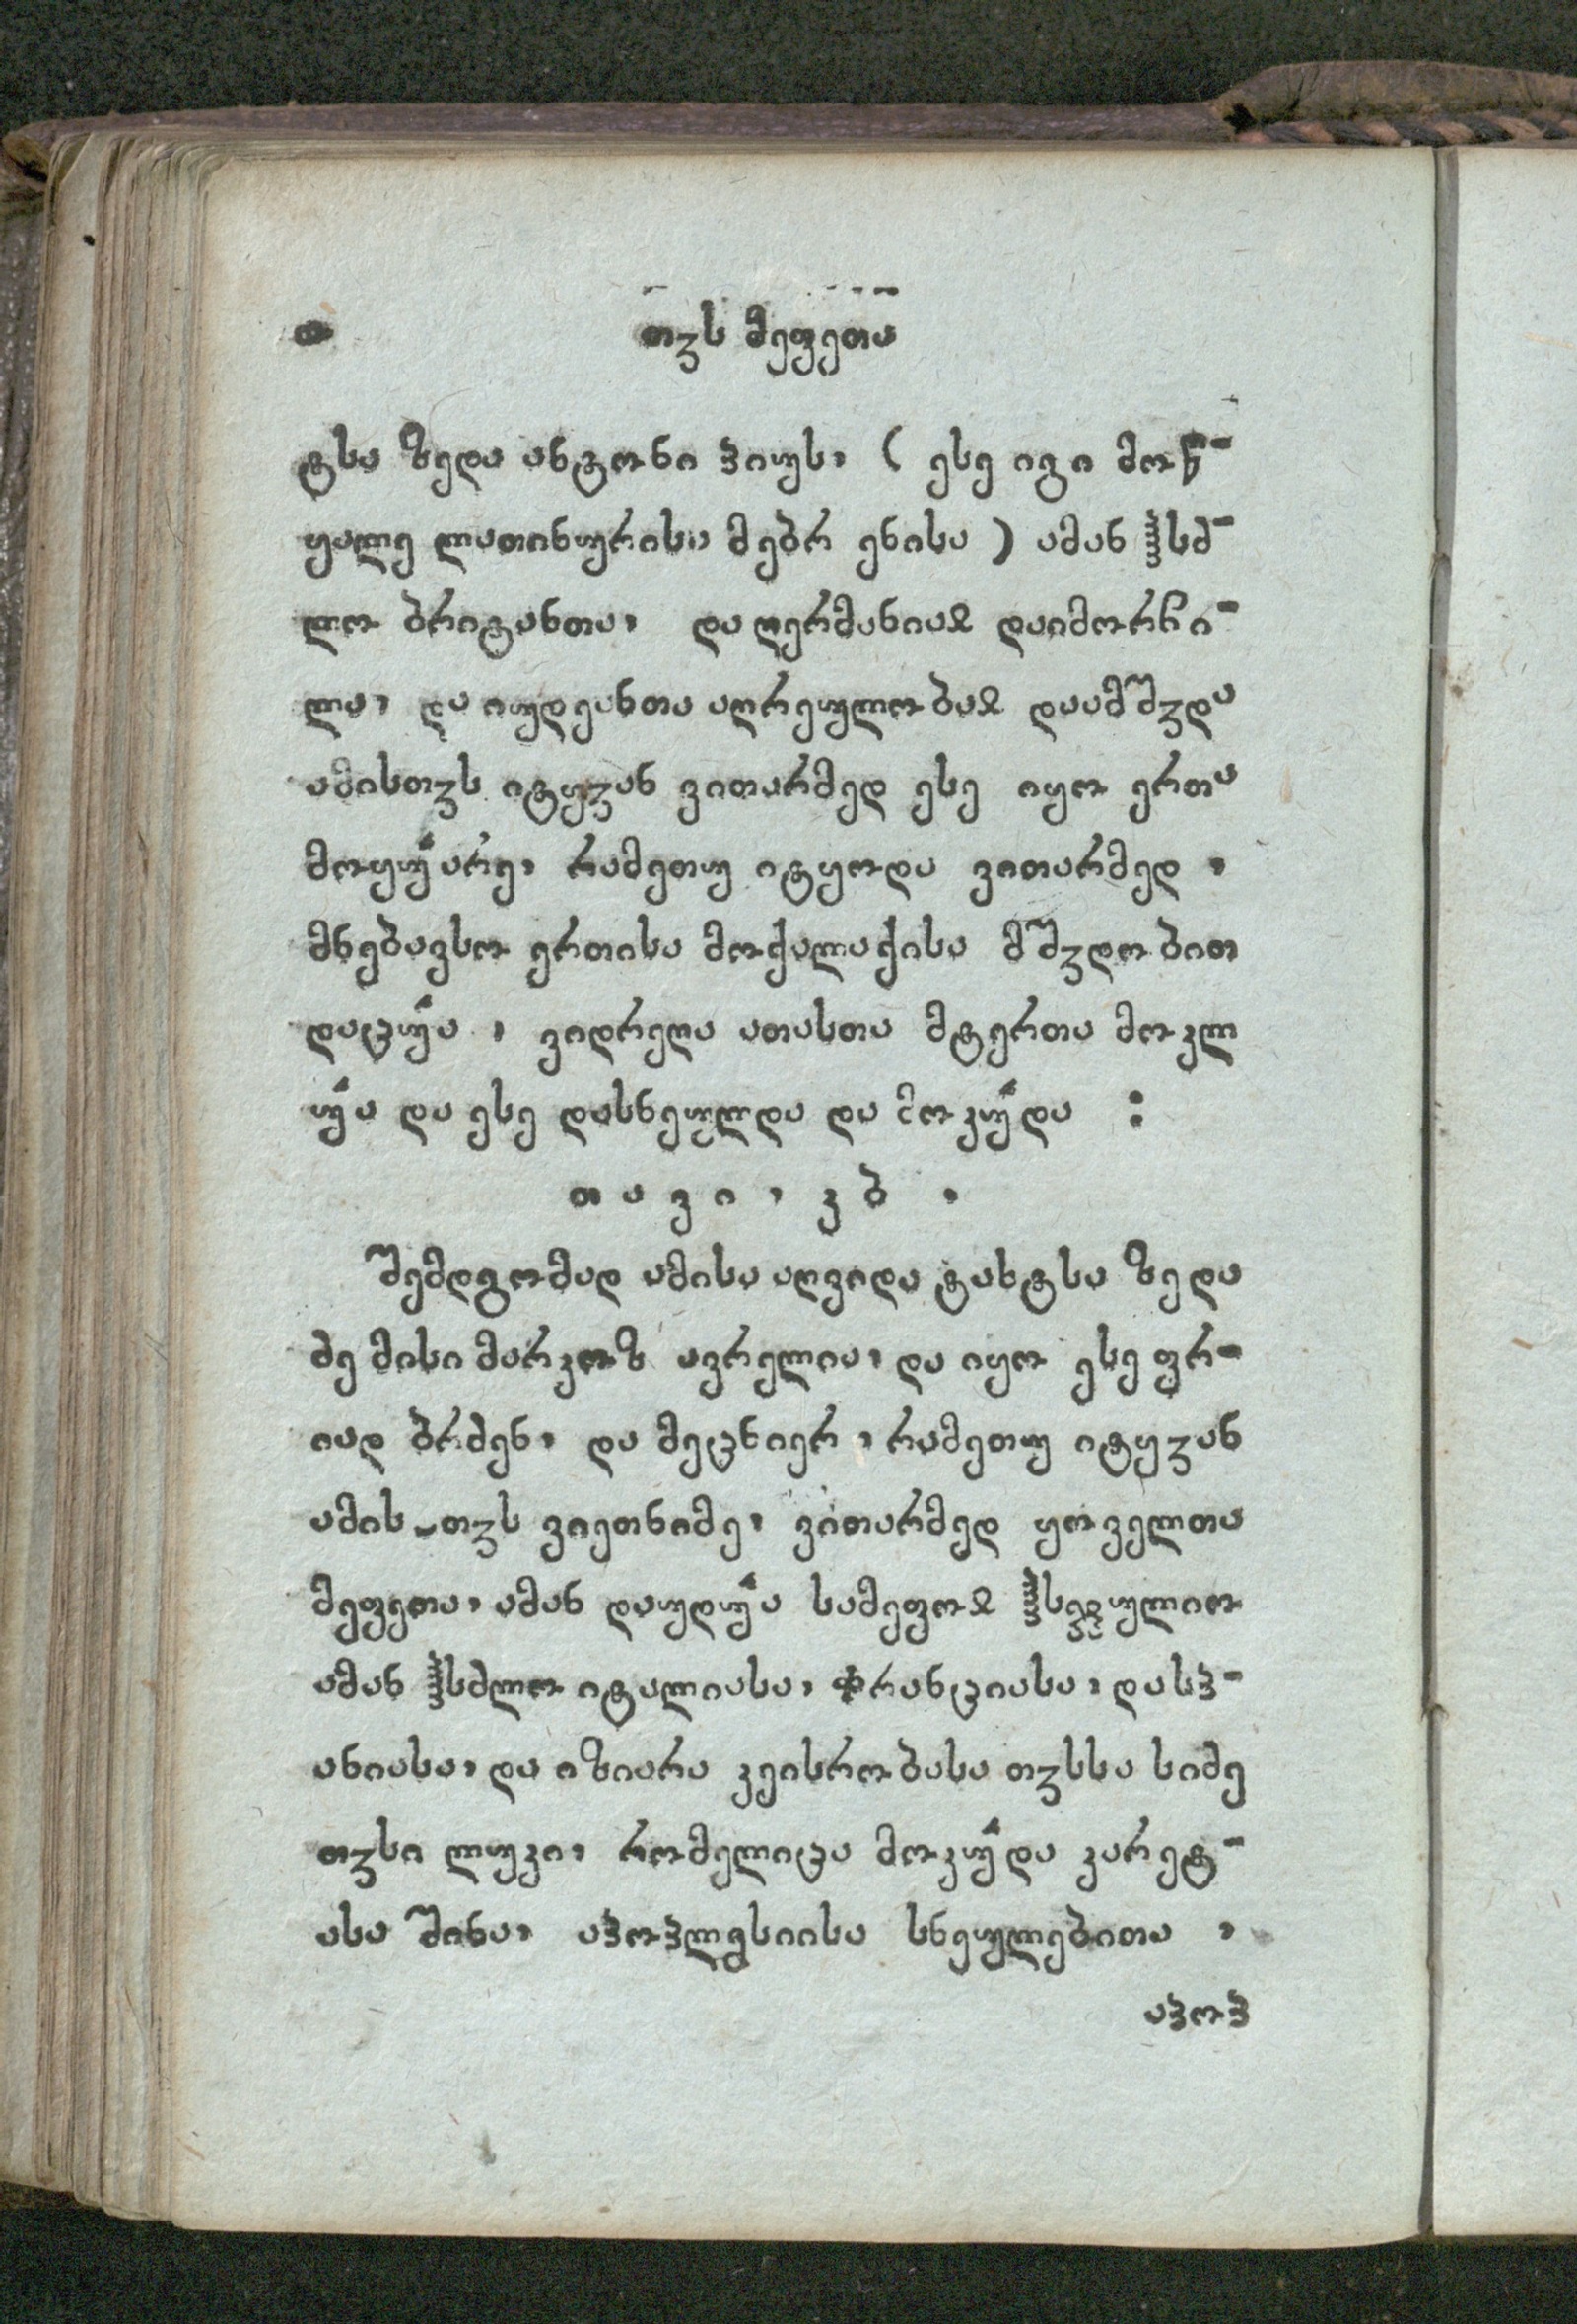 თჳს მეფეთა
ტსა ზედა ანტონი პიუს, ( ესე იგი მოწ-
ყალე ლათინურისა მებრ ენისა ) ამან ჴსმ-
ლო ბრიტანთა, და ღერმანიაჲ დაიმორჩი-
ლა, და იუდეანთა აღრეულობაჲ დაამშჳდა
ამისთჳს იტყჳან ვითარმედ ესე იყო ერთა
მოყუ̂არე, რამეთუ იტყოდა ვითარმედ ,
მნებავსო ერთისა მოქალაქისა მშჳდობით
დაცუ̂ა , ვიდრეღა ათასთა მტერთა მოკლ
უ̂ა და ესე დასნეულდა და მოკუ̂და :
თავი, კბ ,
შემდგომად ამისა აღვიდა ტახტსა ზედა
ძე მისი მარკოზ ავრელია, და იყო ესე ფრ-
იად ბრძენ, და მეცნიერ , რამეთუ იტყჳან
ამის-თჳს ვიეთნიმე, ვითარმედ ყოველთა
მეფეთა, ამან დაუღუ̂ა სამეფოჲ ჴსეულიო
ამან ჴსძლო იტალიასა, ფრანციასა, დასპ-
ანიასა, და იზიარა კეისრობასა თჳსსა სიძე
თჳსი ლუკი, რომელიცა მოკუ̂და კარეტ-
ასა შინა, აპოპლეგსიისა სნეულებითა ,
აპოპ